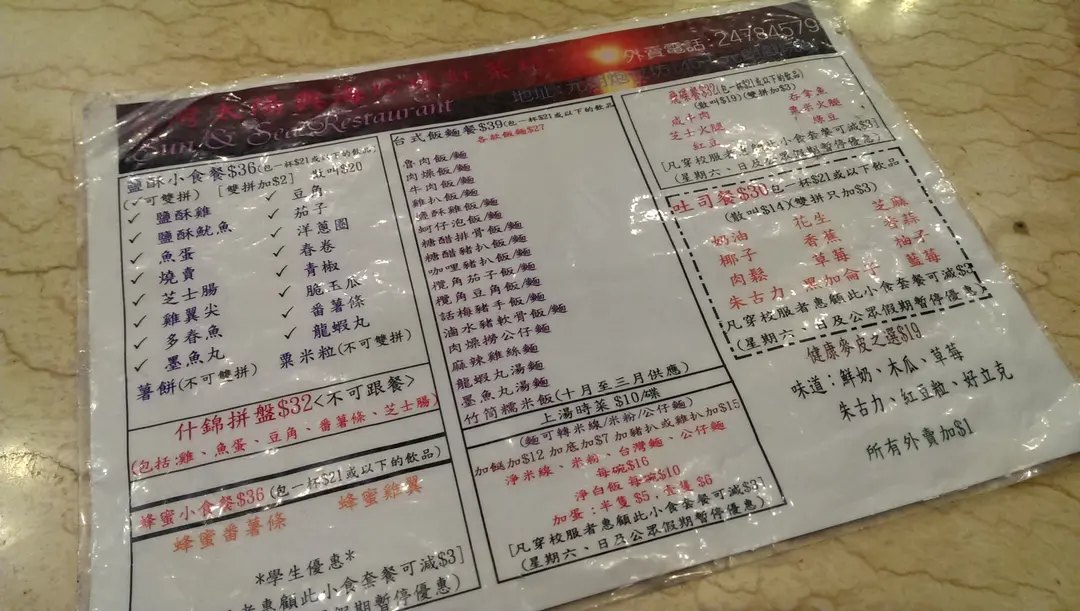 外賣電話:24784579
Sun & Sea Restaurant
地址:元
鹽酥小食餐$36(包一杯$21或以下的飲品)
(✓可雙拼) [雙拼加$2] 散叫$20
✓ 鹽酥雞 ✓ 豆角
✓ 鹽酥魷魚 ✓ 茄子
✓ 魚蛋 ✓ 洋蔥圈
✓ 燒賣 ✓ 春卷
✓ 芝士腸 ✓ 青椒
✓ 雞翼尖 ✓ 脆玉瓜
✓ 多春魚 ✓ 番薯條
✓ 墨魚丸 ✓ 龍蝦丸
薯餅(不可雙拼) 粟米粒(不可雙拼)
什錦拼盤$32<不可跟餐>
(包括:雞、魚蛋、豆角、番薯條、芝士腸)
蜂蜜小食餐$36(包一杯$21或以下的飲品)
蜂蜜番薯條 蜂蜜雞翼
*學生優惠*
者惠顧此小食套餐可減$3]
假期暫停優惠)
台式飯麵餐$39(包一杯$21或以下的飲品
各款飯麵$27
魯肉飯/麵
肉燥飯/麵
牛肉飯/麵
雞扒飯/麵
鹽酥雞飯/麵
蚵仔泡飯/麵
糖醋排骨飯/麵
糖醋豬扒飯/麵
咖哩豬扒飯/麵
欖角茄子飯/麵
欖角豆角飯/麵
話梅豬手飯/麵
滷水豬軟骨飯/麵
肉燥撈公仔麵
麻辣雞絲麵
龍蝦丸湯麵
墨魚丸湯麵
竹筒糯米飯(十月至三月供應)
上湯時菜 $10/碟
(麵可轉米線/米粉/公仔麵)
加餸加$12 加底加$7 加豬扒或雞扒加$15
淨米線、米粉、台灣麵、公仔麵
每碗$16
淨白飯 每碗$10
加蛋:半隻 $5,壹隻 $6
[凡穿校服者惠顧此小食套餐可減$3]
(星期六、日及公眾假期暫停優惠)
餐$32(包一杯$21或以下的飲品)
(散叫$19)(雙拼加$3)
咸牛肉 吞拿魚
芝士火腿 粟米火腿
紅豆 綠豆
[凡穿校服者惠顧此小食套餐可減$3]
(星期六、日及公眾假期暫停優惠)
吐司餐$30(包一杯$21或以下飲品
(散叫$14)(雙拼只加$3)
奶油 花生 芝麻
椰子 香蕉 香蒜
肉鬆 草莓 柚子
朱古力 黑加侖子 藍莓
[凡穿校服者惠顧此小食套餐可減$3
(星期六、日及公眾假期暫停優惠)
健康麥皮之選$19
味道:鮮奶、木瓜、草莓
朱古力、紅豆粒、好立克
所有外賣加$1